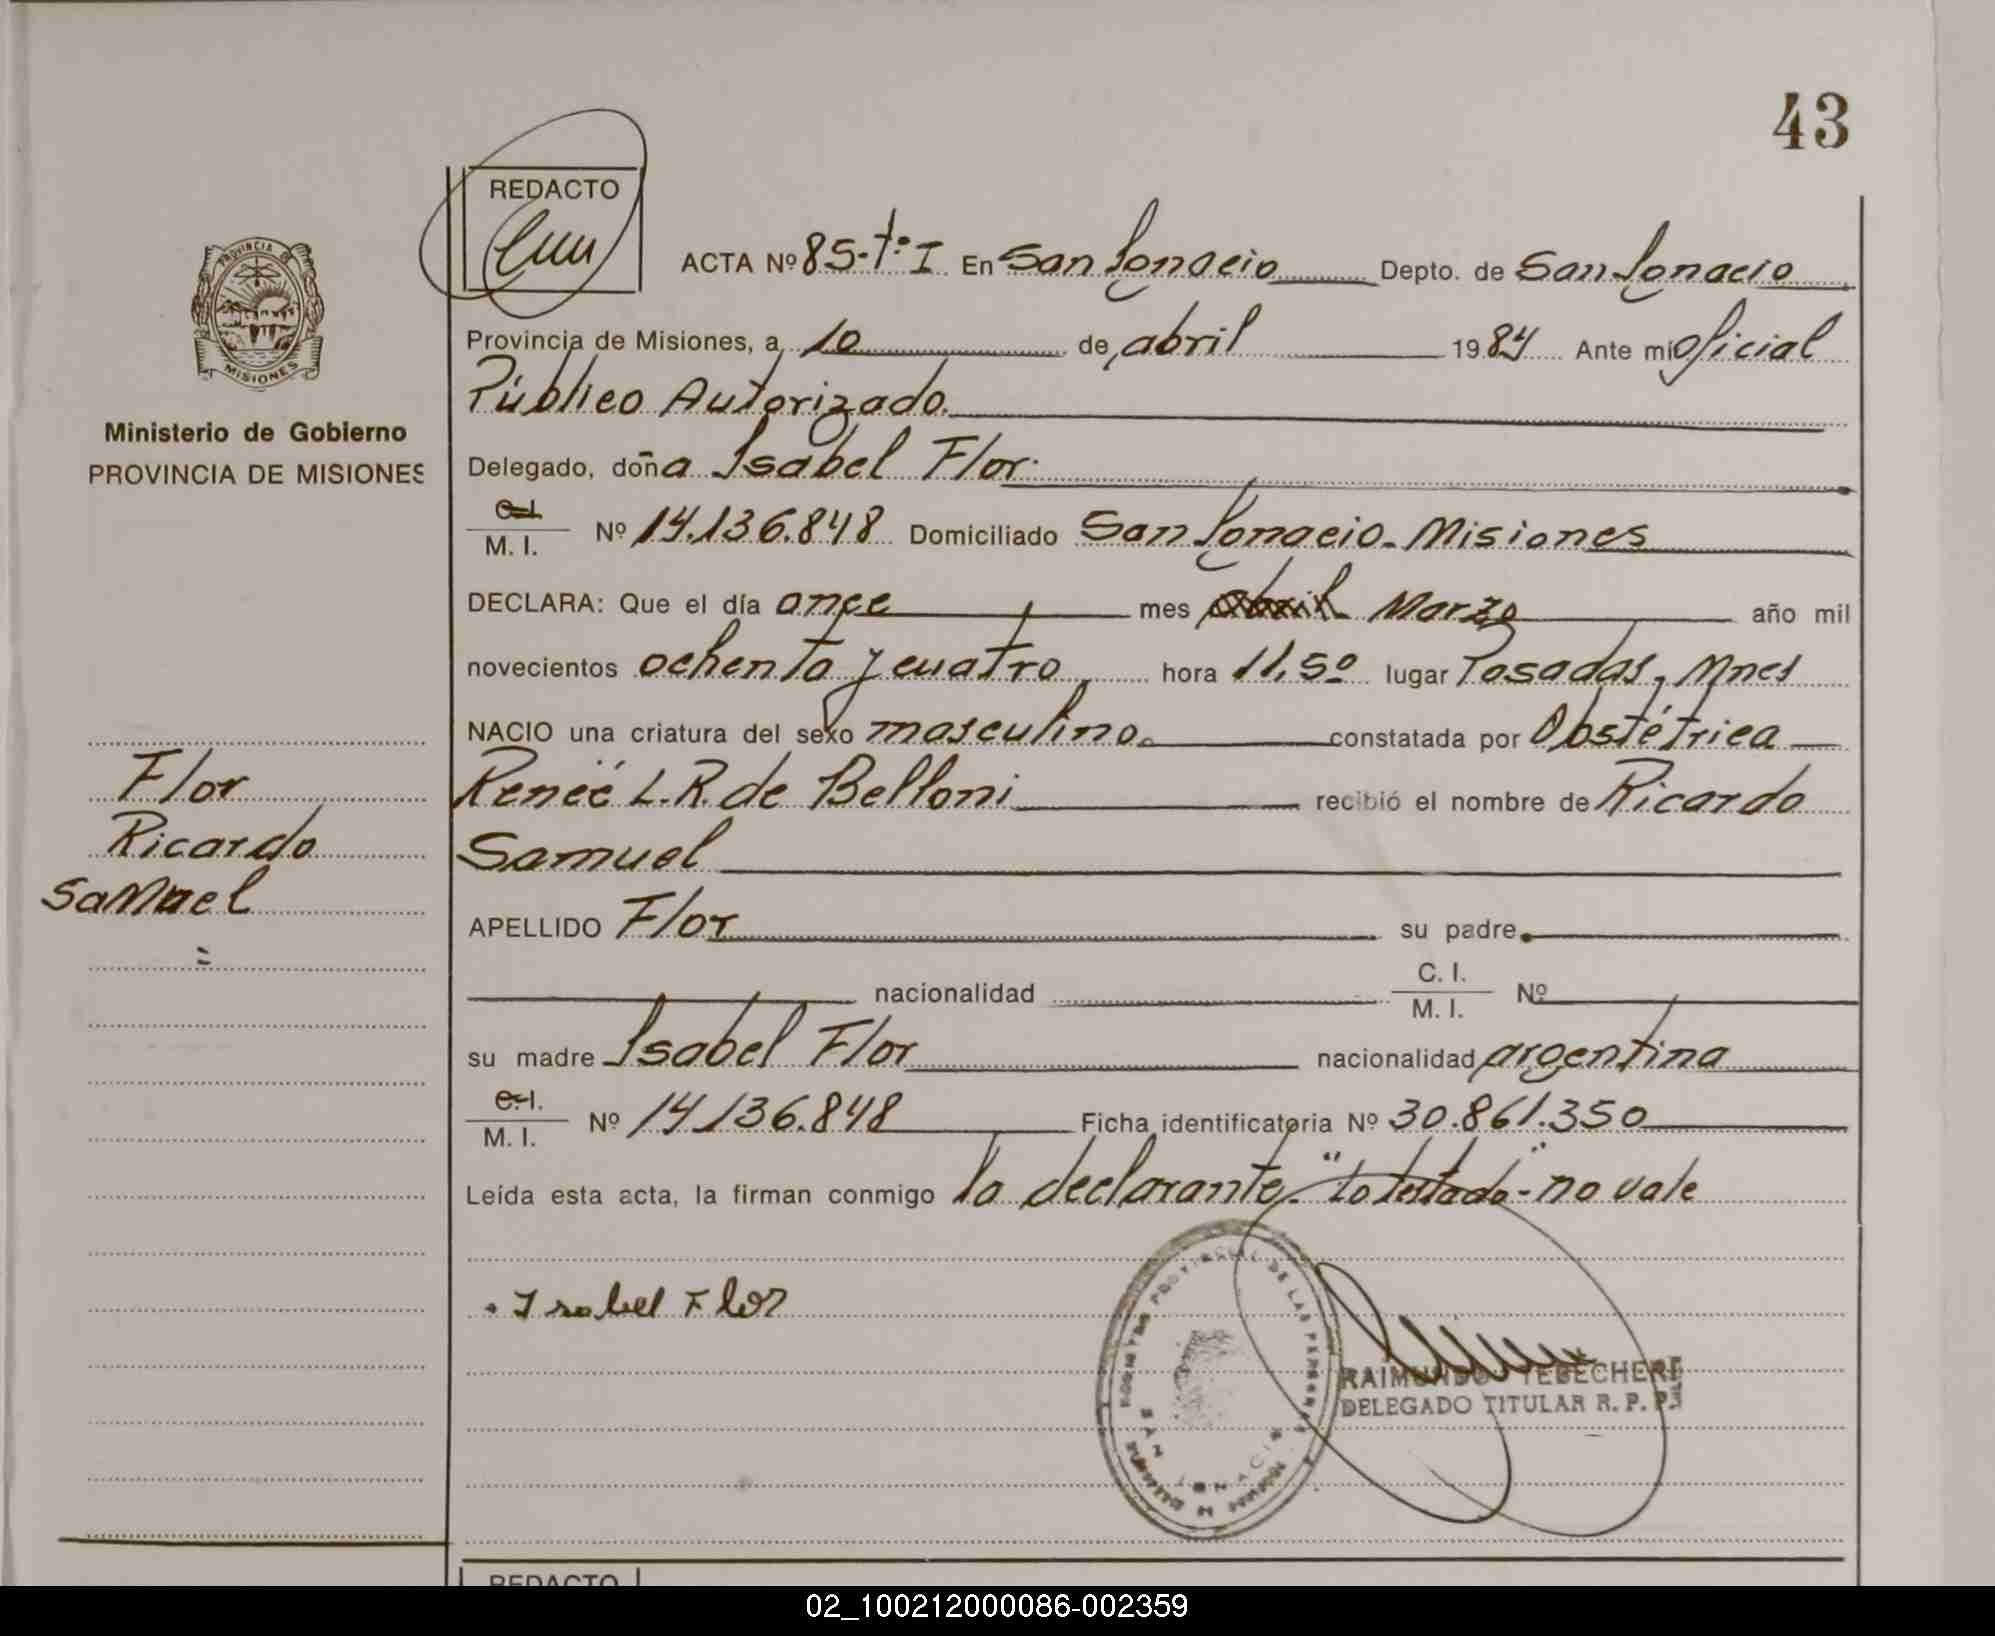 43
REDACTO
ACTA Nº 85-tº I En San Ignacio Depto. de San Ignacio
Provincia de Misiones, a 10 de abril 1984 Ante mí Oficial
Público Autorizado.
Delegado, doña Isabel Flor
C.I.
M. I. Nº 14.136.848 Domiciliado San Ignacio - Misiones
DECLARA: Que el día once mes abril Marzo año mil
novecientos ochenta y cuatro hora 11,50 lugar Posadas, Mnes
NACIO una criatura del sexo masculino. constatada por Obstétrica
Reneé L.R. de Belloni recibió el nombre de Ricardo
Samuel
APELLIDO Flor su padre
nacionalidad C. I.
M. I. Nº
su madre Isabel Flor nacionalidad argentina
C.I.
M. I. Nº 14.136.848 Ficha identificatoria Nº 30.861.350
Leída esta acta, la firman conmigo la declarante. "lo testado" - no vale
Isabel Flor
RAIMUNDO YEBECHERI
DELEGADO TITULAR R. P. P.
SAN IGNACIO
PROVINCIA DE
MISIONES
Ministerio de Gobierno
PROVINCIA DE MISIONES
Flor
Ricardo
Samuel
REDACTO
02_100212000086-002359